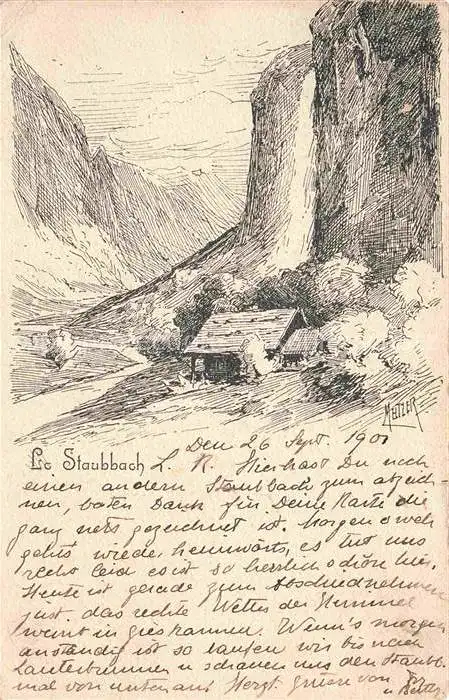 METZER
Le Staubbach
Den 26 Sept. 1901
L. R. Hier hast Du noch
einen andern Staubbach zum abzeich-
nen, besten Dank für Deine Karte die
ganz nett gezeichnet ist. Morgen o weh
gehts wieder heimwärts, es tut uns
recht leid es ist so herrlich schön hier.
Heute ist gerade zum Abschiednehmen
just das rechte Wetter der Himmel
weint in Gieskannen. Wenn's morgen
anständig ist so laufen wir bis nach
Lauterbrunnen u schauen uns den Staubb.
mal von unten an Herzl. grüsse von